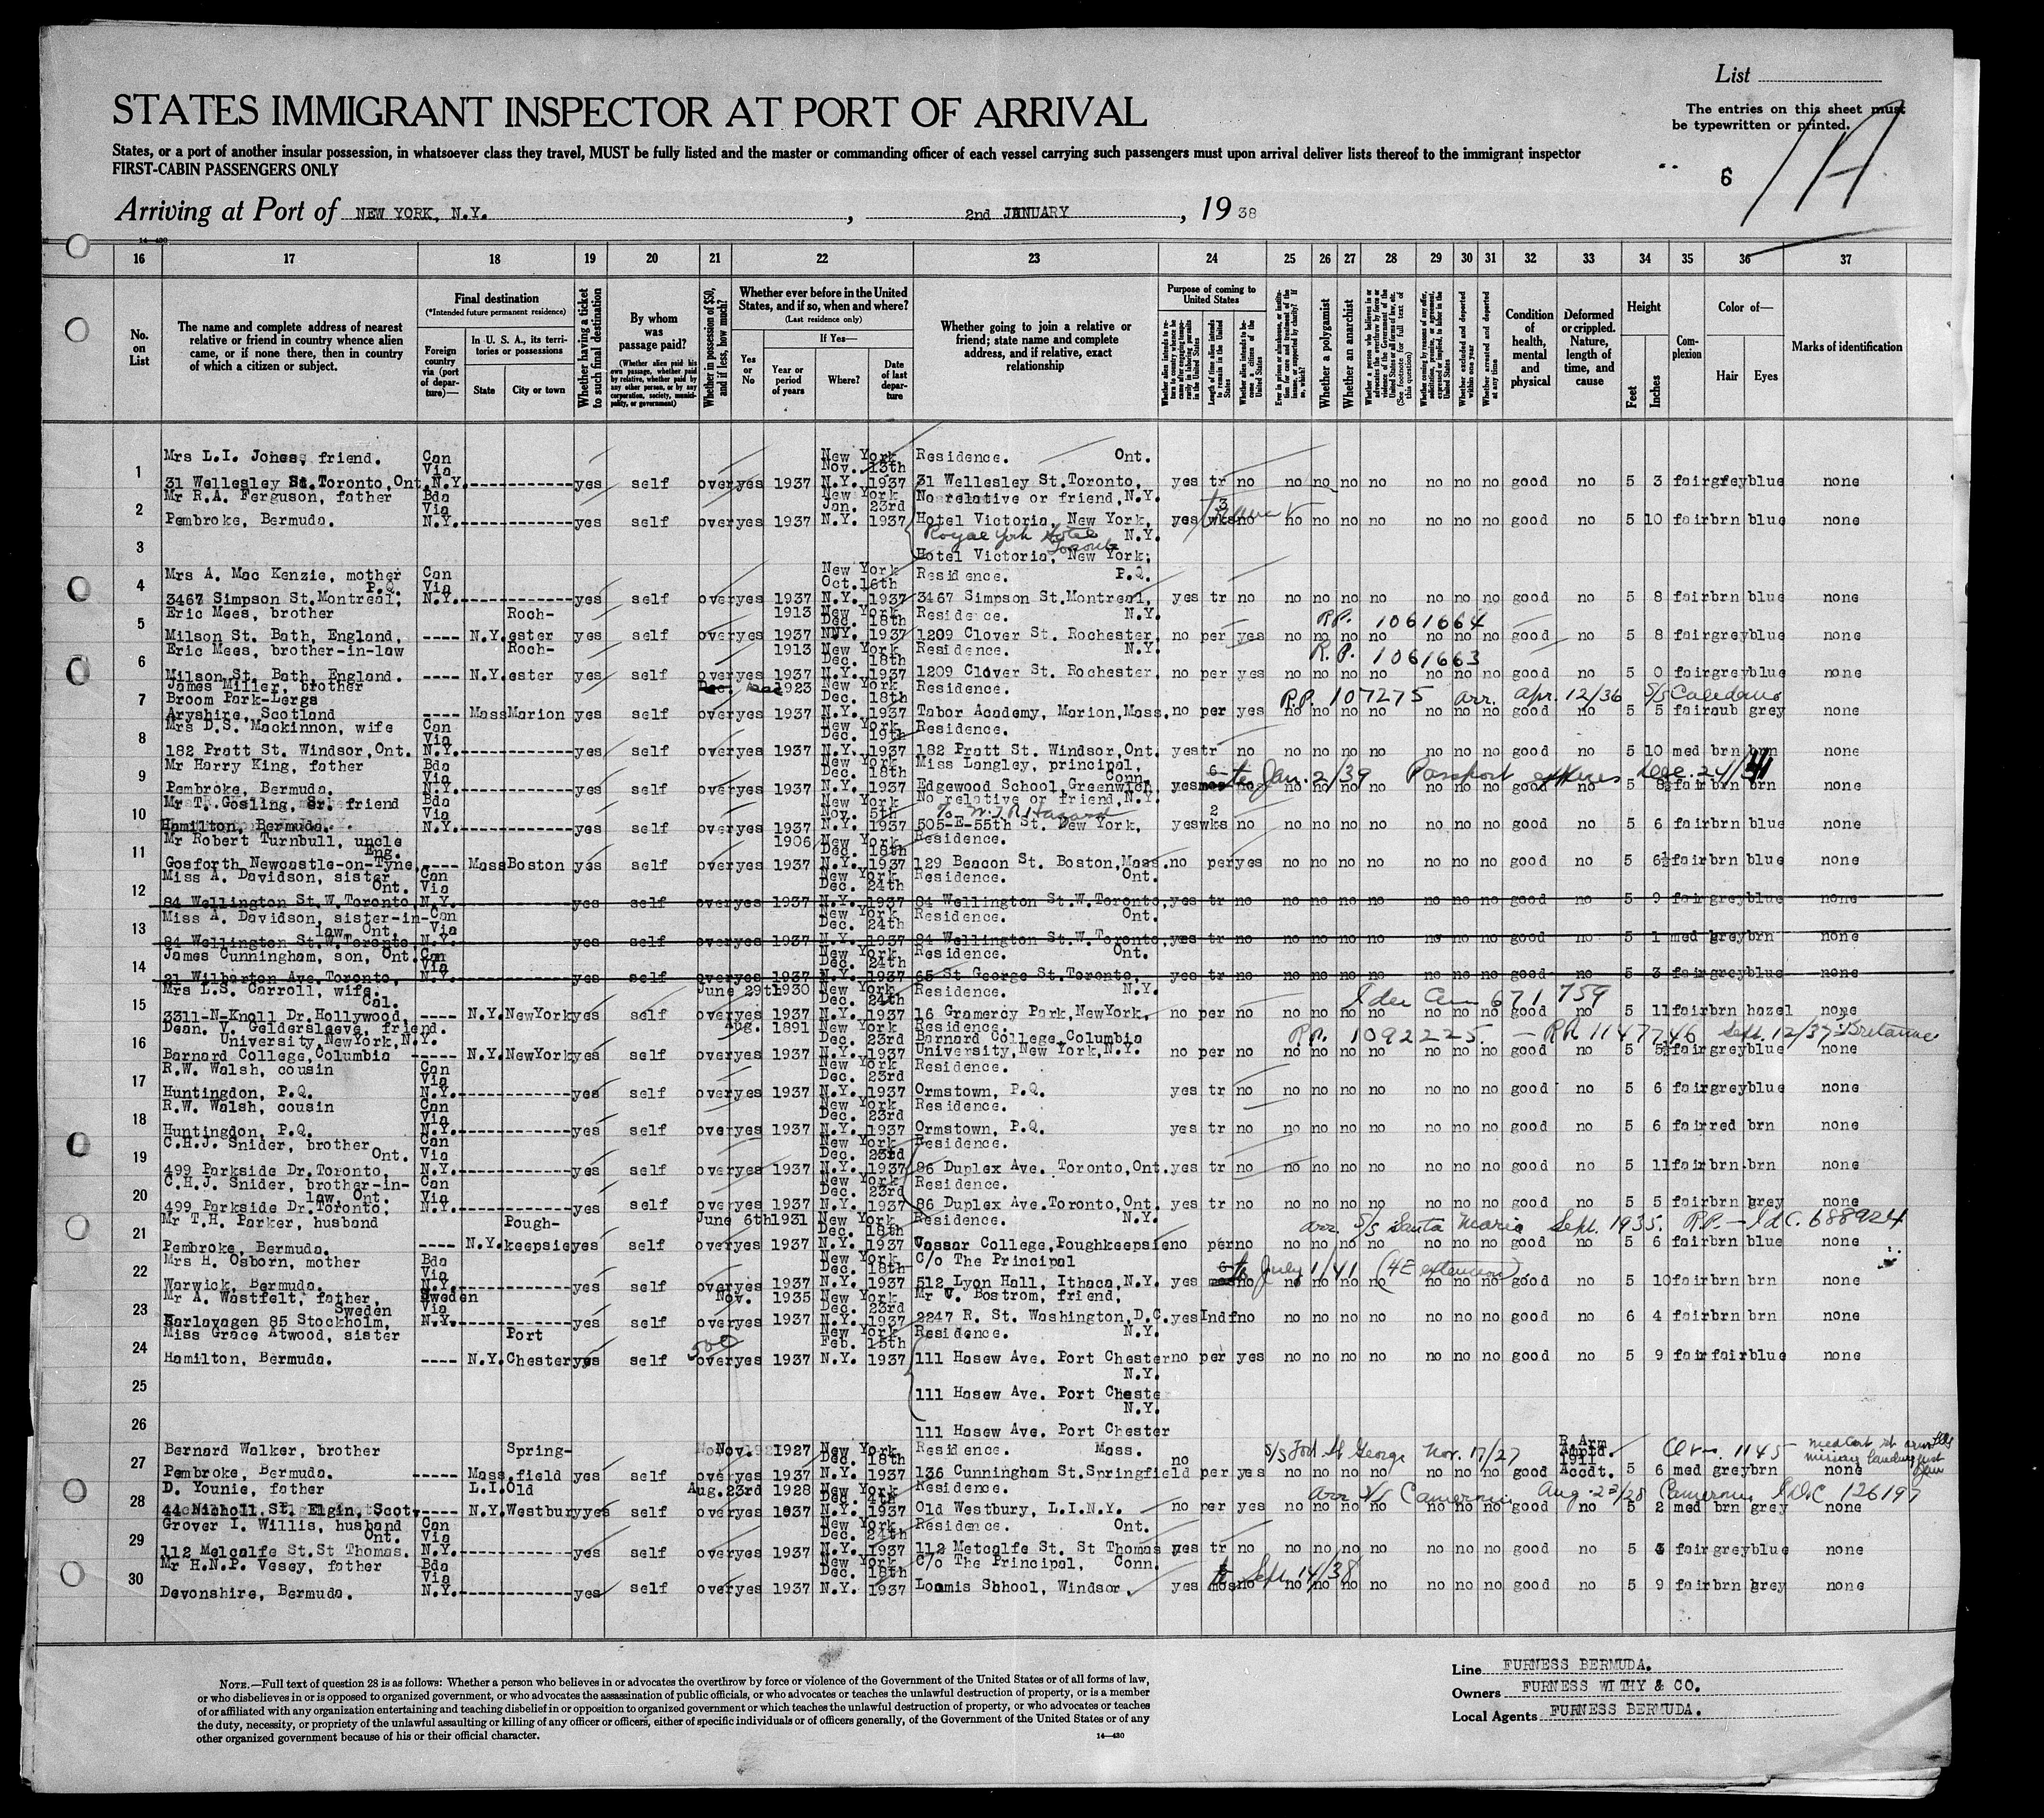 List
The entries on this sheet must
be typewritten or printed.
STATES IMMIGRANT INSPECTOR AT PORT OF ARRIVAL
States, or a port of another insular possession, in whatsoever class they travel, MUST be fully listed and the master or commanding officer of each vessel carrying such passengers must upon arrival deliver lists thereof to the immigrant inspector
FIRST-CABIN PASSENGERS ONLY
6 1A
Arriving at Port of NEW YORK, N.Y., 2nd JANUARY, 1938
14—430
16 17 18 19 20 21 22 23 24 25 26 27 28 29 30 31 32 33 34 35 36 37
No. on List
The name and complete address of nearest relative or friend in country whence alien came, or if none there, then in country of which a citizen or subject.
Final destination
(*Intended future permanent residence)
Foreign country via (port of departure)—
In U. S. A., its territories or possessions
State
City or town
Whether having a ticket to such final destination
By whom was passage paid?
(Whether alien paid his own passage, whether paid by relative, whether paid by any other person, or by any corporation, society, municipality, or government)
Whether in possession of $50, and if less, how much?
Whether ever before in the United States, and if so, when and where?
(Last residence only)
Yes or No
If Yes—
Year or period of years
Where?
Date of last departure
Whether going to join a relative or friend; state name and complete address, and if relative, exact relationship
Purpose of coming to United States
Length of time alien intends to remain in the United States
Whether alien intends to become a citizen of the United States
Whether a polygamist
Whether an anarchist
(See footnote for full text of this question)
Whether excluded and deported within one year
Whether arrested and deported at any time
Condition of health, mental and physical
Deformed or crippled. Nature, length of time, and cause
Height
Feet
Inches
Complexion
Color of—
Hair
Eyes
Marks of identification
Mrs L.I. Jones, friend. Can Via New York Nov. 13th Residence. Ont.
1 31 Wellesley St. Toronto, Ont. N.Y. yes self over yes 1937 N.Y. 1937 31 Wellesley St. Toronto, yes tr no no no no no no no no good no 5 3 fair grey blue none
Mr R.A. Ferguson, father Bda Via New York Jan. 23rd No relative or friend, N.Y. 3
2 Pembroke, Bermuda. N.Y. yes self over yes 1937 N.Y. 1937 Hotel Victoria, New York, yes wks no no no no no no no no good no 5 10 fair brn blue none
Royal York Hotel Toronto N.Y.
3 Hotel Victoria, New York,
Mrs A. Mac Kenzie, mother P.Q. Can Via New York Oct. 16th Residence. P.Q.
4 3467 Simpson St. Montreal, N.Y. yes self over yes 1937 N.Y. 1937 3467 Simpson St. Montreal, yes tr no no no no no no no no good no 5 8 fair brn blue none
Eric Mees, brother Roch- 1913 New York Dec. 18th Residence. N.Y. R.P. 1061664
5 Milson St. Bath, England. ---- N.Y. ester yes self over yes 1937 NNY. 1937 1209 Clover St. Rochester, no per yes no no no no no no no good no 5 8 fair grey blue none
Eric Mees, brother-in-law Roch- 1913 New York Dec. 18th Residence. N.Y. R.P. 1061663
6 Milson St. Bath, England. ---- N.Y. ester yes self over yes 1937 N.Y. 1937 1209 Clover St. Rochester. no per yes no no no no no no no good no 5 0 fair grey blue none
James Miller, brother 1923 New York Dec. 18th Residence. R.P. 107275 arr. Apr. 12/36 S/S Caledonia
Broom Park-Lergs
7 Aryshire, Scotland ---- Mass Marion yes self over yes 1937 N.Y. 1937 Tabor Academy, Marion, Mass. no per yes no no no no no no no good no 5 5 fair aub grey none
Mrs D.S. Mackinnon, wife Can Via New York Dec. 19th Residence.
8 182 Pratt St. Windsor, Ont. N.Y. yes self over yes 1937 N.Y. 1937 182 Pratt St. Windsor, Ont. yes tr no no no no no no no no good no 5 10 med brn brn none
Mr Harry King, father Bda Via New York Dec. 18th Miss Langley, principal, Conn. 6 to Jan. 2/39 Passport expires Dec. 24/41
9 Pembroke, Bermuda. N.Y. yes self over yes 1937 N.Y. 1937 Edgewood School, Greenwich yes mos no no no no no no no no good no 5 8½ fair brn brn none
Mr T. Gosling, Sr. friend Bda Via New York Nov. 5th No relative or friend, N.Y. c/o W.J.R. Hazard 2
10 Hamilton, Bermuda. N.Y. yes self over yes 1937 N.Y. 1937 505-E-55th St. New York, yes wks no no no no no no no no good no 5 6 fair brn blue none
Mr Robert Turnbull, uncle Eng. 1906 New York Dec. 18th Residence.
11 Gosforth, Newcastle-on-Tyne, ---- Mass Boston yes self over yes 1937 N.Y. 1937 129 Beacon St. Boston, Mass. no per yes no no no no no no no good no 5 6½ fair brn blue none
Miss A. Davidson, sister Ont. Can Via New York Dec. 24th Residence. Ont.
12 84 Wellington St. W. Toronto, N.Y. yes self over yes 1937 N.Y. 1937 84 Wellington St. W. Toronto, yes tr no no no no no no no no good no 5 9 fair grey blue none
Miss A. Davidson, sister-in-law, Ont. Can Via New York Dec. 24th Residence. Ont.
13 84 Wellington St. W. Toronto, N.Y. yes self over yes 1937 N.Y. 1937 84 Wellington St. W. Toronto, yes tr no no no no no no no no good no 5 1 med grey brn none
James Cunningham, son, Ont. Can Via New York Dec. 24th Residence. Ont.
14 21 Wilberton Ave. Toronto, N.Y. yes self over yes 1937 N.Y. 1937 65 St George St. Toronto, yes tr no no no no no no no no good no 5 3 fair grey blue none
Mrs L.S. Carroll, wife. Cal. June 29th 1930 New York Dec. 24th Residence. N.Y. 671759
15 3311-N-Knoll Dr. Hollywood, ---- N.Y. New York yes self over yes 1937 N.Y. 1937 16 Gramercy Park, New York, no per no no no no no no no no good no 5 11 fair brn hazel none
Dean. V. Geldersleeve, friend. Aug. 1891 New York Dec. 23rd Residence. R.P. 1092225 — R.P. 1147746 Sept. 12/37 Britannic
University, New York, N.Y. Barnard College, Columbia
16 Barnard College, Columbia ----- N.Y. New York yes self over yes 1937 N.Y. 1937 University, New York, N.Y. no per no no no no no no no no good no 5 5½ fair grey blue none
R.W. Walsh, cousin Can Via New York Dec. 23rd Residence.
17 Huntingdon, P.Q. N.Y. yes self over yes 1937 N.Y. 1937 Ormstown, P.Q. yes tr no no no no no no no no good no 5 6 fair grey blue none
R.W. Walsh, cousin Can Via New York Dec. 23rd Residence.
18 Huntingdon, P.Q. N.Y. yes self over yes 1937 N.Y. 1937 Ormstown, P.Q. yes tr no no no no no no no no good no 5 6 fair red brn none
C.H.J. Snider, brother Ont. Can Via New York Dec. 23rd Residence.
19 499 Parkside Dr. Toronto, N.Y. yes self over yes 1937 N.Y. 1937 86 Duplex Ave. Toronto, Ont. yes tr no no no no no no no no good no 5 11 fair brn brn none
C.H.J. Snider, brother-in-law, Ont. Can Via New York Dec. 23rd Residence.
20 499 Parkside Dr. Toronto, N.Y. yes self over yes 1937 N.Y. 1937 86 Duplex Ave. Toronto, Ont. yes tr no no no no no no no no good no 5 5 fair brn grey none
Mr T.H. Parker, husband Pough- June 6th 1931 New York Dec. 18th Residence. N.Y. arr. S/S Santa Maria Sept. 1935. R.P. — IdC. 688924
21 Pembroke, Bermuda. ---- N.Y. keepsie yes self over yes 1937 N.Y. 1937 Vassar College, Poughkeepsie no per no no no no no no no no good no 5 6 fair brn blue none
Mrs H. Osborn, mother Bda Via New York Dec. 18th C/o The Principal 6 to July 1/41 (4E extension)
22 Warwick, Bermuda. N.Y. yes self over yes 1937 N.Y. 1937 512 Lyon Hall, Ithaca, N.Y. yes mos no no no no no no no no good no 5 10 fair brn brn none
Mr A. Wastfelt, father, Sweden Sweden Via Nov. 1935 New York Dec. 23rd Mr V. Bostrom, friend,
23 Karlavagen 85 Stockholm, N.Y. yes self over yes 1937 N.Y. 1937 2247 R. St. Washington, D.C. yes Indf no no no no no no no no good no 6 4 fair brn brn none
Miss Grace Atwood, sister Port 500 New York Feb. 15th Residence. N.Y.
24 Hamilton, Bermuda. ---- N.Y. Chester yes self over yes 1937 N.Y. 1937 111 Hasew Ave. Port Chester no per yes no no no no no no no good no 5 9 fair fair blue none
N.Y.
25 111 Hasew Ave. Port Cheste
N.Y.
26 111 Hasew Ave. Port Chester
Bernard Walker, brother Spring- Nov. 1927 New York Dec. 18th Residence. Mass. S/S Fort St George Nov. 17/27 R. Arm Amptd. 1911 1145
27 Pembroke, Bermuda. ----- Mass. field yes self over yes 1937 N.Y. 1937 136 Cunningham St. Springfield no per yes no no no no no no no good Accdt. 5 6 med grey brn none
D. Younie, father L.I. Old Aug. 23rd 1928 New York Dec. 4th Residence. arr S/S Cameronia Aug. 23/28 Cameronia I.D.C 126197
28 44 Nicholl St. Elgin, Scot. ---- N.Y. Westbury yes self over yes 1937 N.Y. 1937 Old Westbury, L.I.N.Y. no per yes no no no no no no no good no 5 2 med brn grey none
Grover I. Willis, husband Ont. Can Via New York Dec. 24th Residence. Ont.
29 112 Metcalfe St. St Thomas. N.Y. yes self over yes 1937 N.Y. 1937 112 Metcalfe St. St Thomas yes tr no no no no no no no no good no 5 fair grey blue none
Mr H.N.P. Vesey, father Bda Via New York Dec. 18th C/o The Principal, Conn. to Sept. 14/38
30 Devonshire, Bermuda. N.Y. yes self over yes 1937 N.Y. 1937 Loomis School, Windsor. yes mos no no no no no no no no good no 5 9 fair brn grey none
NOTE.—Full text of question 28 is as follows: Whether a person who believes in or advocates the overthrow by force or violence of the Government of the United States or of all forms of law,
or who disbelieves in or is opposed to organized government, or who advocates the assassination of public officials, or who advocates or teaches the unlawful destruction of property, or is a member
of or affiliated with any organization entertaining and teaching disbelief in or opposition to organized government or which teaches the unlawful destruction of property, or who advocates or teaches
the duty, necessity, or propriety of the unlawful assaulting or killing of any officer or officers, either of specific individuals or of officers generally, of the Government of the United States or of any
other organized government because of his or their official character.
14—430
Line FURNESS BERMUDA.
Owners FURNESS WITHY & CO.
Local Agents FURNESS BERMUDA.